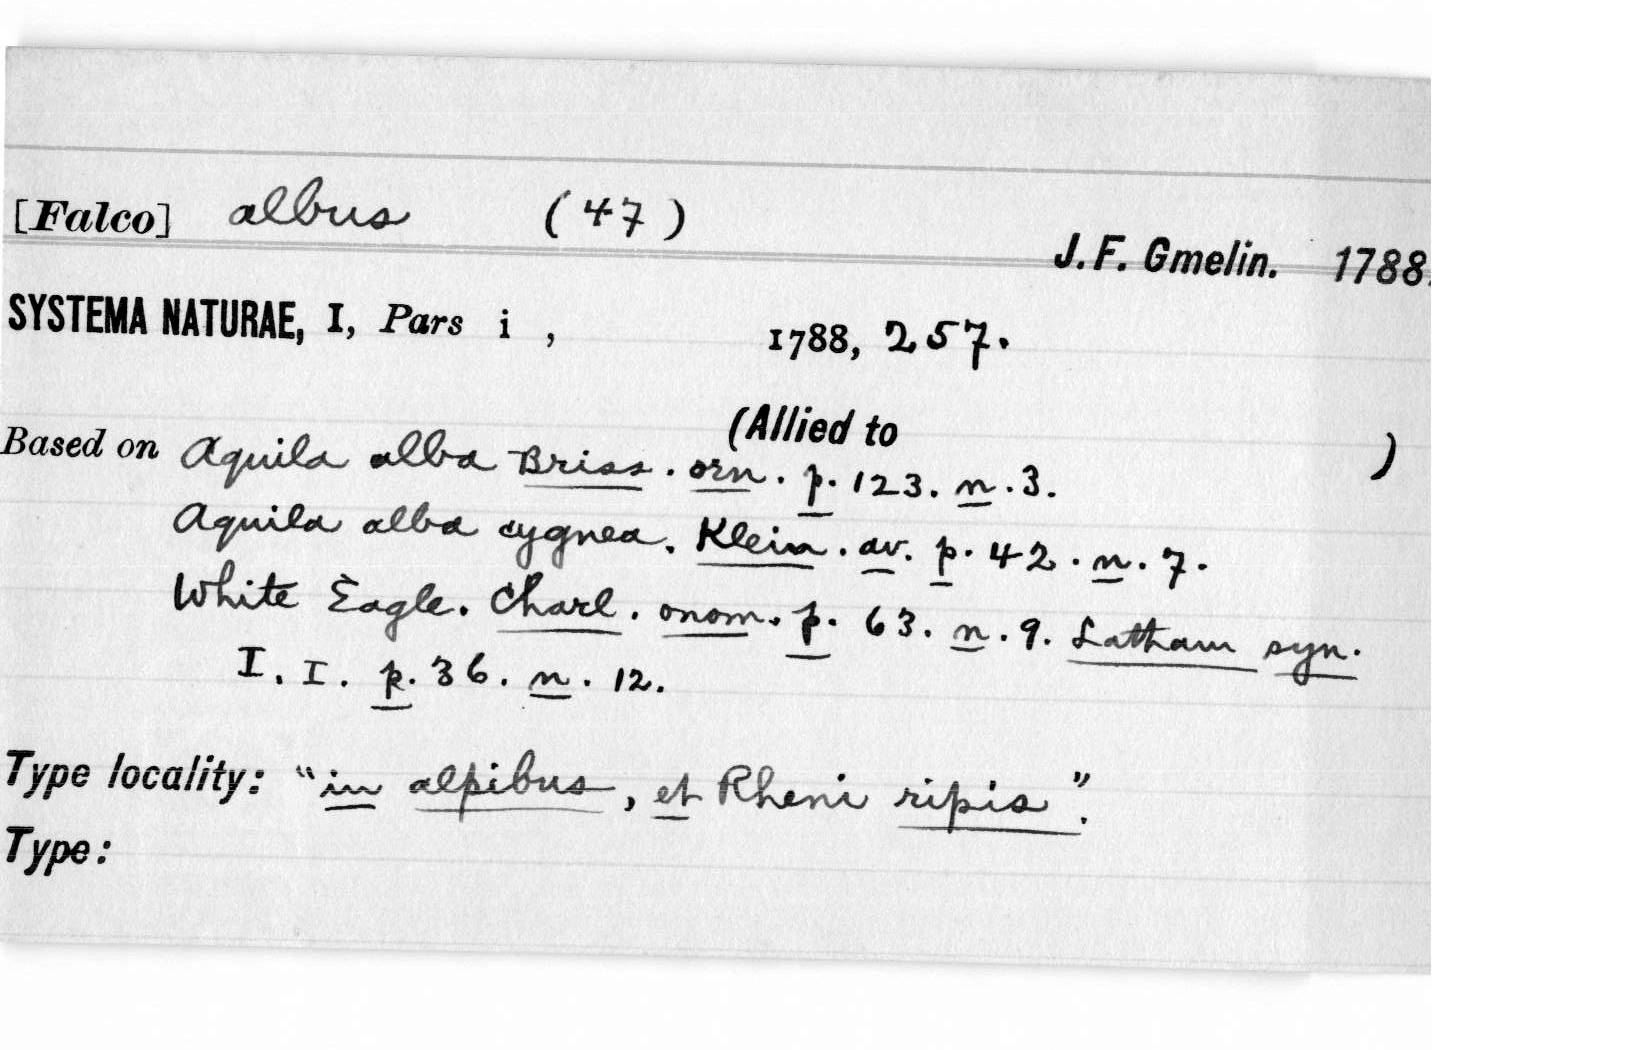 [Falco] albus (47)
J. F. Gmelin. 1788.
SYSTEMA NATURAE, I, Pars i , 1788, 257.
(Allied to )
Based on Aquila alba Briss. orn. p. 123. n. 3.
Aquila alba cygnea. Klein. av. p. 42. n. 7.
White Eagle. Charl. onom. p. 63. n. 9. Latham syn.
I. I. p. 36. n. 12.
Type locality: "in alpibus, et Rheni ripis".
Type: